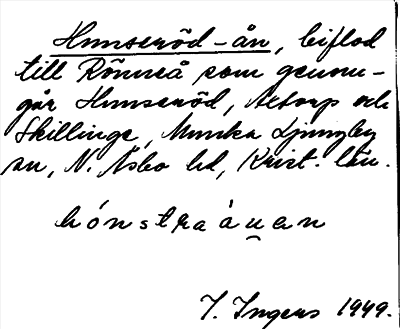 Hunseröd-ån, biflod
till Rönneå som genom-
går Hunseröd, Aetorp och
Skillinge, Munka Ljungby
sn, N. Åsbo hd, Krist. län.
hónstraáu̯an
I. Ingers 1949.